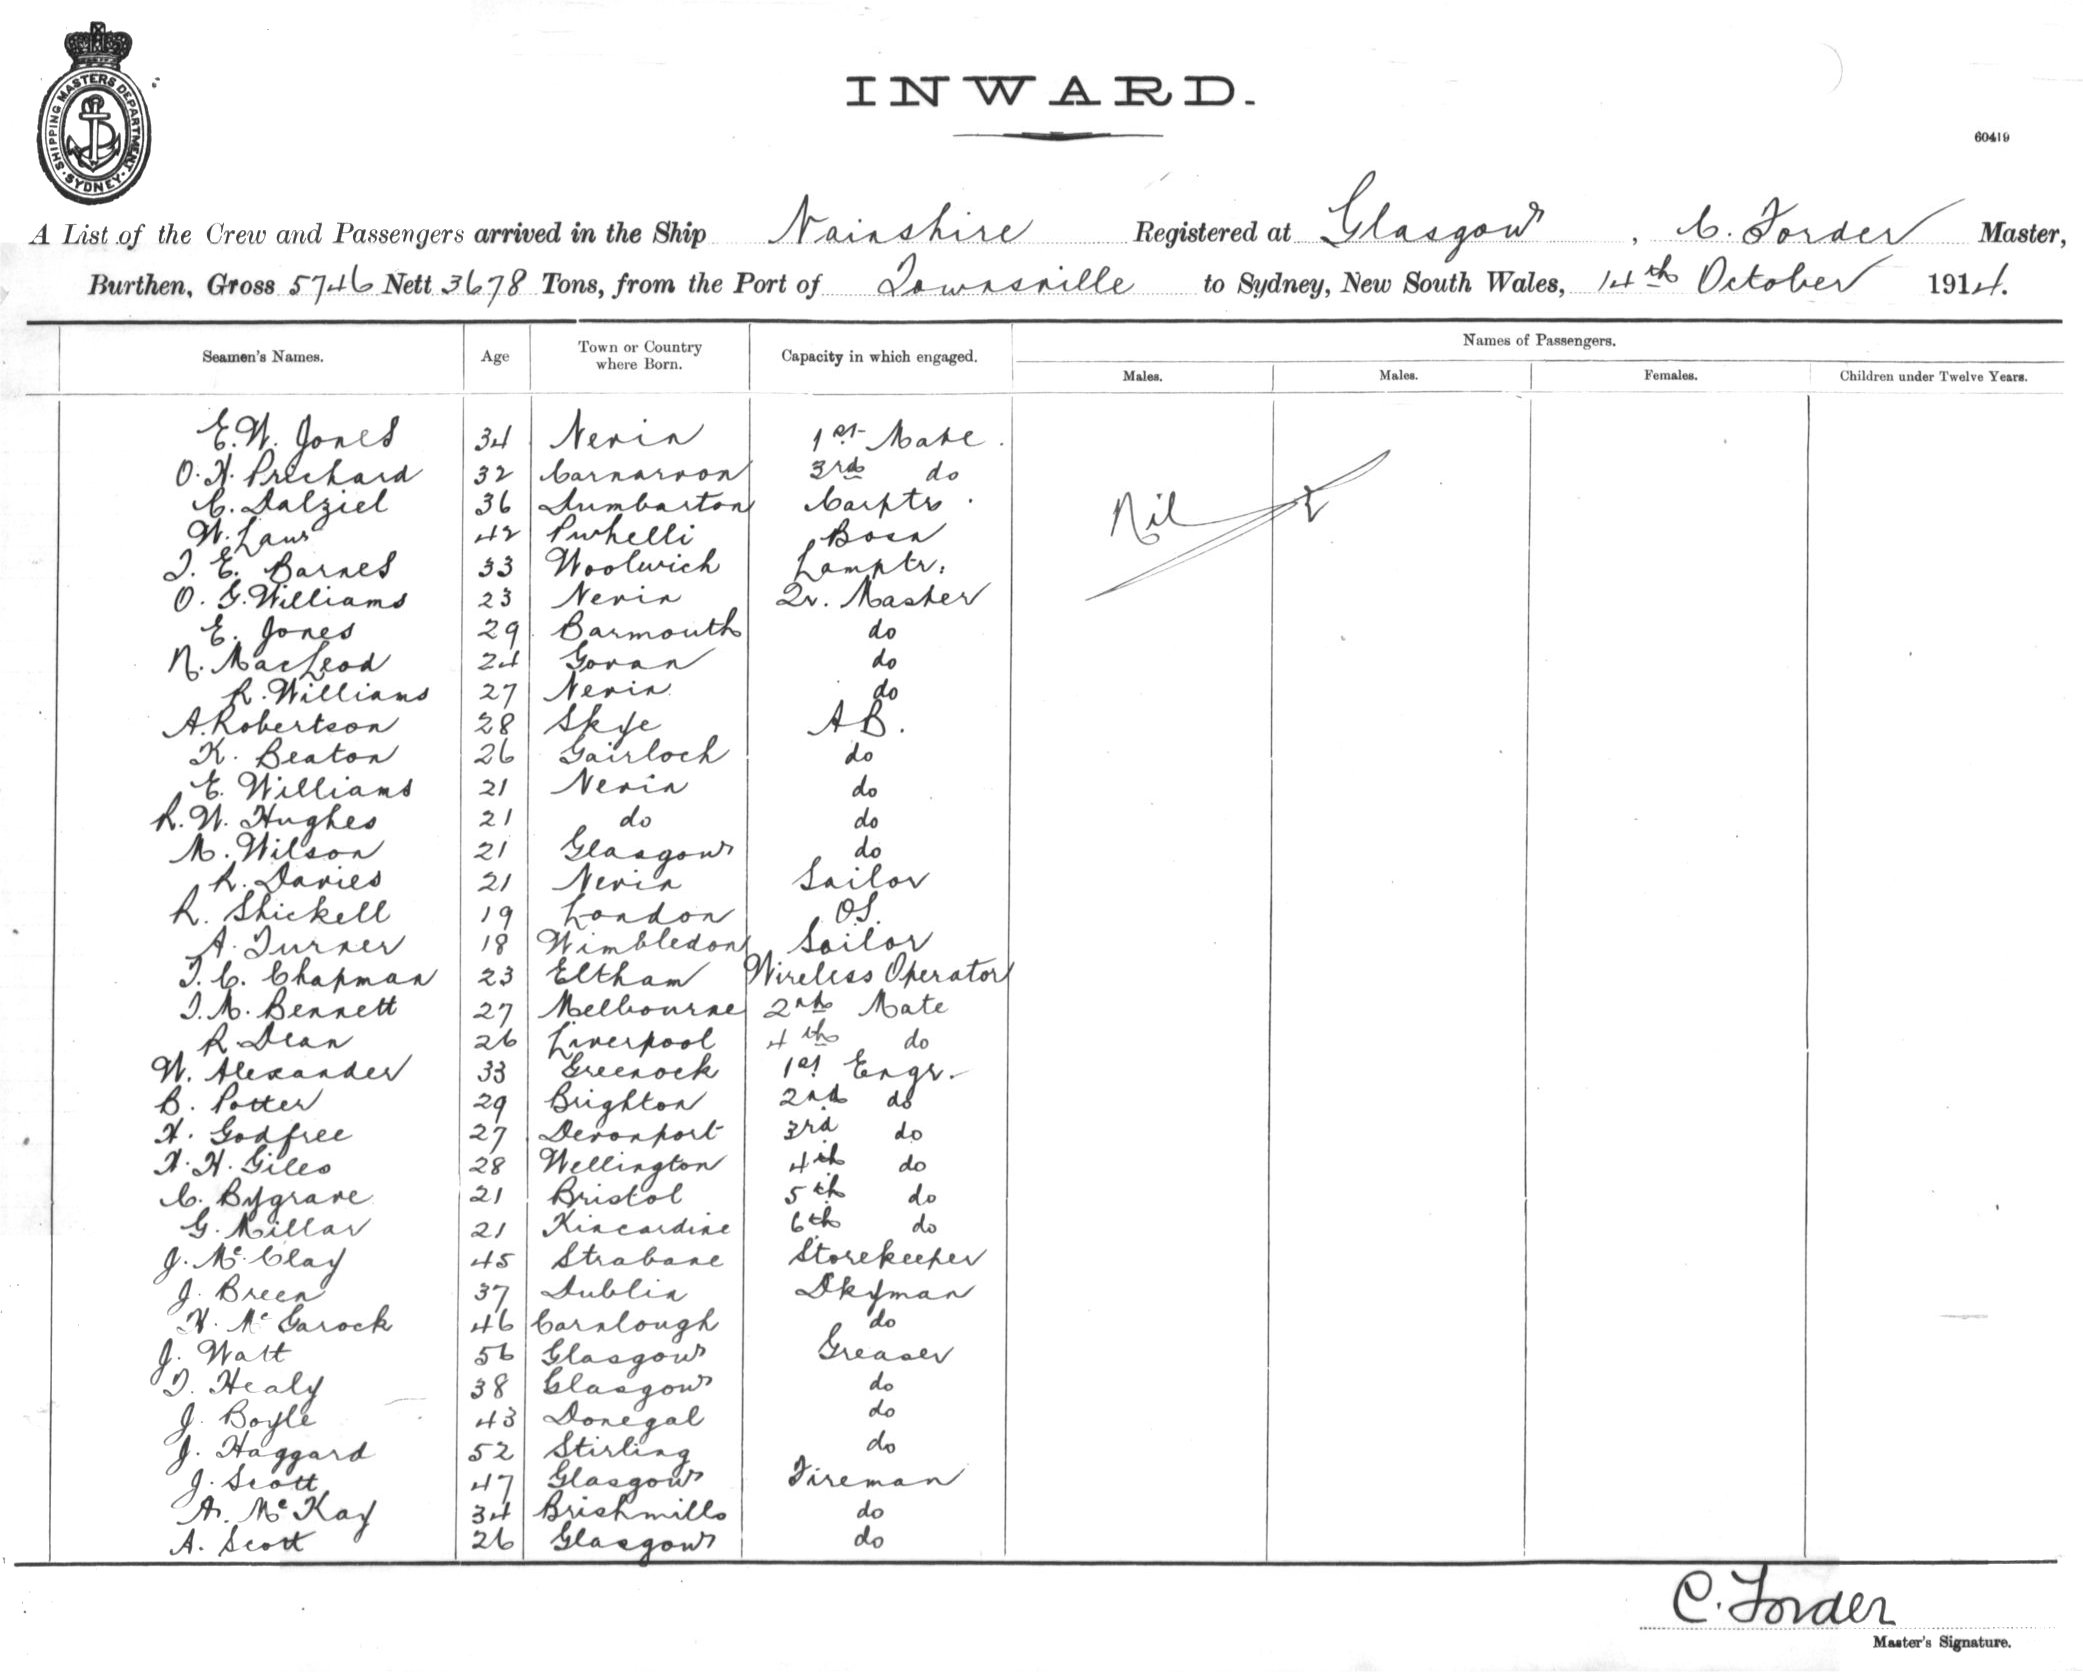 SHIPPING MASTERS DEPARTMENT
SYDNEY
INWARD.
60419
A List of the Crew and Passengers arrived in the Ship Nairnshire Registered at Glasgow, C. Forder Master,
Burthen, Gross 5746 Nett 3678 Tons, from the Port of Townsville to Sydney, New South Wales, 14th October 1914.
Seamen's Names. Age Town or Country where Born. Capacity in which engaged. Names of Passengers.
Males. Males. Females. Children under Twelve Years.
E. W. Jones 34 Nevin 1st Mate.
O. H. Prichard 32 Carnarvon 3rd do
C. Dalziel 36 Dumbarton Carptr.
W. Law 42 Pwhelli Bosn
Nil
T. E. Barnes 33 Woolwich Lamptr.
O. G. Williams 23 Nevin Qr. Master
E. Jones 29 Barmouth do
N. MacLeod 24 Govan do
R. Williams 27 Nevin do
A. Robertson 28 Skye AB.
K. Beaton 26 Gairloch do
E. Williams 21 Nevin do
R. W. Hughes 21 do do
M. Wilson 21 Glasgow do
R. Davies 21 Nevin Sailor
R. Shickell 19 London OS.
A. Turner 18 Wimbledon Sailor
T. C. Chapman 23 Eltham Wireless Operator
T. M. Bennett 27 Melbourne 2nd Mate
R. Dean 26 Liverpool 4th do
W. Alexander 33 Greenock 1st Engr.
B. Potter 29 Brighton 2nd do
H. Godfree 27 Devonport 3rd do
H. H. Giles 28 Wellington 4th do
C. Bygrave 21 Bristol 5th do
G. Millar 21 Kincardine 6th do
J. McClay 45 Strabane Storekeeper
J. Breen 37 Dublin Dkyman
H. McGarock 46 Carnlough do
J. Watt 56 Glasgow Greaser
T. Healy 38 Glasgow do
J. Boyle 43 Donegal do
J. Haggard 52 Stirling do
J. Scott 47 Glasgow Fireman
A. McKay 34 Brishmills do
A. Scott 26 Glasgow do
C. Forder
Master's Signature.